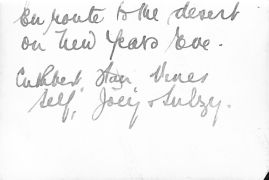 En route to the desert
on New Years Eve.
Cuthbert Stan Vines
self, Joey & Sulzy.